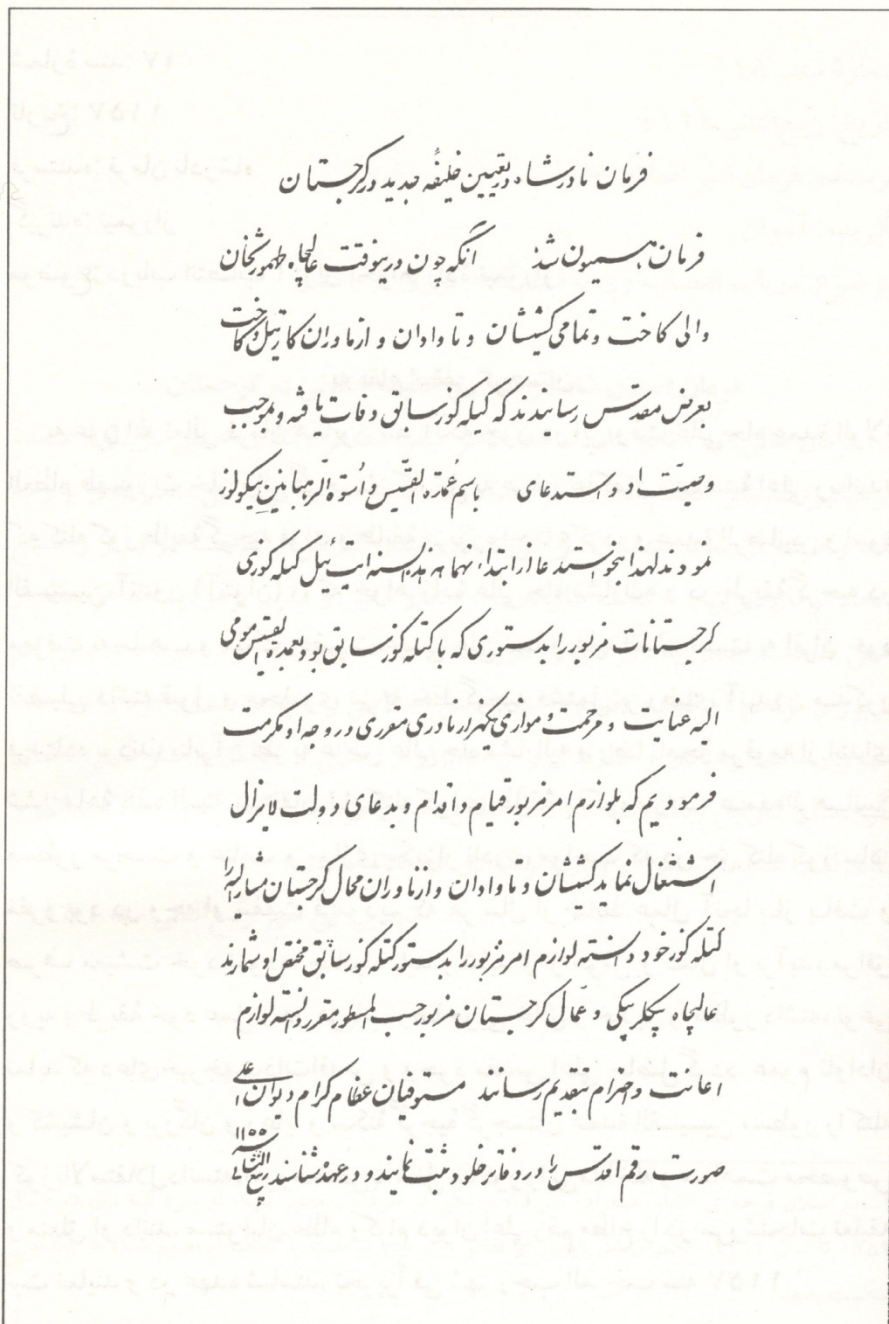 فرمان نادرشاه در تعیین خلیفهٔ جدید در گرجستان
فرمان همیون شد آنکه چون درینوقت عالیجاه طهمورثخان
والی کاخت و تمامی کشیشان و تاوادان و ازناوران کارتیل و کاخت
بعرض مقدس رسانیدند که کتیله کوز سابق وفات یافته و بموجب
وصیت او و استدعای باسم عمدة القسیس و اسوة الرهبابین نیکولوز
نمودند لهذا بنحو استدعا از ابتدای ئیل کتیله کوزی
گرجستانات مزبور را بدستوری که با کتله کوز سابق بود بعمدة القسیس مومی
الیه عنایت و مرحمت و موازی یکهزار نادری مقرری در وجه او مکرمت
فرمودیم که بلوازم امر مزبور قیام و اقدام و بدعای دولت لایزال
اشتغال نماید کشیشان و تاوادان و ازناوران محال گرجستان مشارالیه را
کتله کوز خود دانسته لوازم امر مزبور را بدستور کتله کوز سابق مختص او شمارند
عالیجاه بیگلربیگی و عمال گرجستان مزبور حسب المسطور مقرر دانسته لوازم
اعانت و احترام بتقدیم رسانند مستوفیان عظام کرام دیوان اعلی
صورت رقم اقدس را در دفاتر خلود ثبت نمایند و در عهده شناسند ربیع الثانی سنه ۱۱۵۵